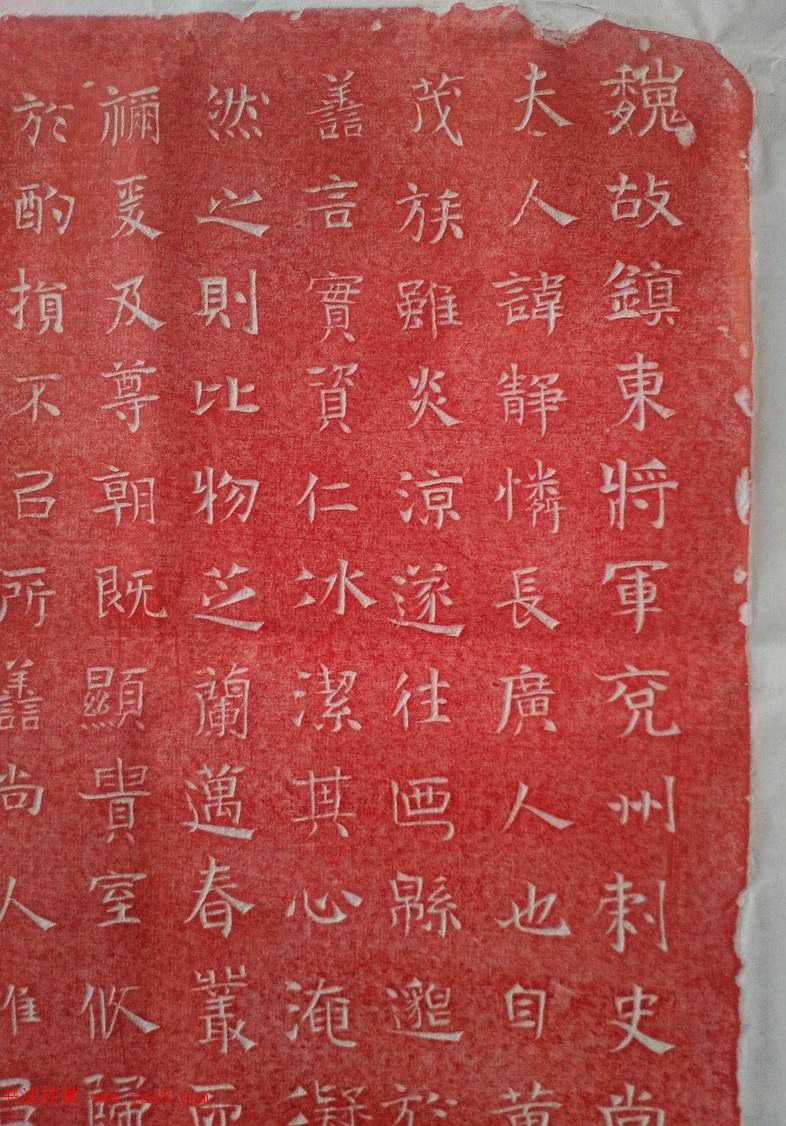 魏故鎮東將軍兗州刺史尚
夫人諱靜憐長廣人也自黃
茂族雖炎涼遂往緜邈於
譱言實資仁冰潔其心淹凝
然之則比物芝蘭邁春叢而
禰爰及尊朝既顯貴室攸歸
於酌損不召所譱尚人